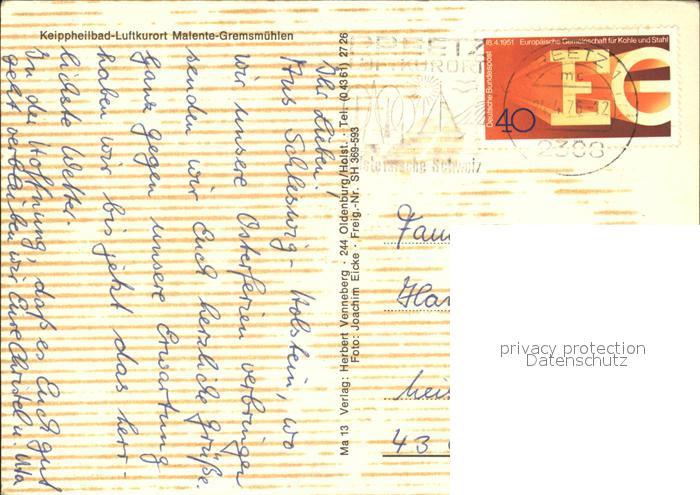 Keippheilbad-Luftkurort Malente-Gremsmühlen
Ihr Lieben!
Aus Schleswig-Holstein, wo
wir unsere Osterferien verbringen
senden wir Euch herzliche Grüße.
Ganz gegen unsere Erwartung
haben wir bis jetzt das herr-
lichste Wetter.
In der Hoffnung, daß es Euch gut
geht verbleiben wir Eure Christel u. Uta
Ma 13 Verlag: Herbert Venneberg · 244 Oldenburg/Holst. · Tel. (0 43 61) 27 26
Foto: Joachim Eicke · Freig.-Nr. SH 369-593
PREETZ
LUFTKURORT
Holsteinische Schweiz
PREETZ 1
mc
76-12
2308
18.4.1951 Europäische Gemeinschaft für Kohle und Stahl
Deutsche Bundespost
EG
40
Fam
Ha
43
privacy protection
Datenschutz